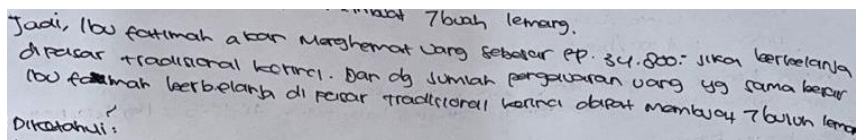 buat 7 buah lemang.
Jadi, Ibu fatimah akan Menghemat uang sebesar Rp. 34.800:- jika berbelanja
di pasar tradisional kerinci. Dan dg jumlah pengeluaran uang yg sama besar
Ibu fatimah berbelanja di pasar tradisional kerinci dapat membuat 7 buluh lema
Diketahui :